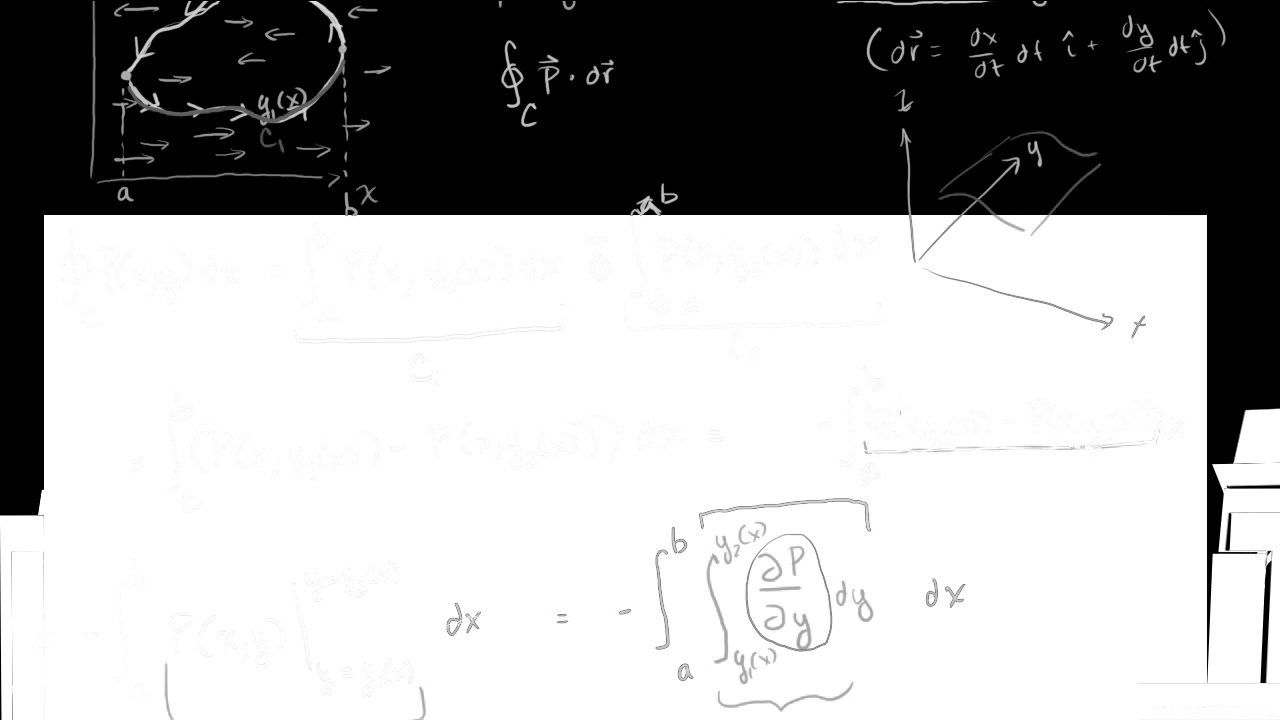 y₁(x)
C₁
a
b
x
∮_C P⃗ · dr⃗
(dr⃗ = dx/dt dt î + dy/dt dt ĵ)
z
y
x
∮_C P(x,y) dx = ∫_a^b P(x, y₁(x)) dx ∫ P(x, y₂(x)) dx
C₁
C₂
= ∫_a^b (P(x, y₁(x)) - P(x, y₂(x))) dx = - ∫_a^b (P(x, y₂(x)) - P(x, y₁(x))) dx
- ∫_a^b P(x,y) | y=y₂(x) y=y₁(x) dx = - ∫_a^b ∫_{y₁(x)}^{y₂(x)} ∂P/∂y dy dx